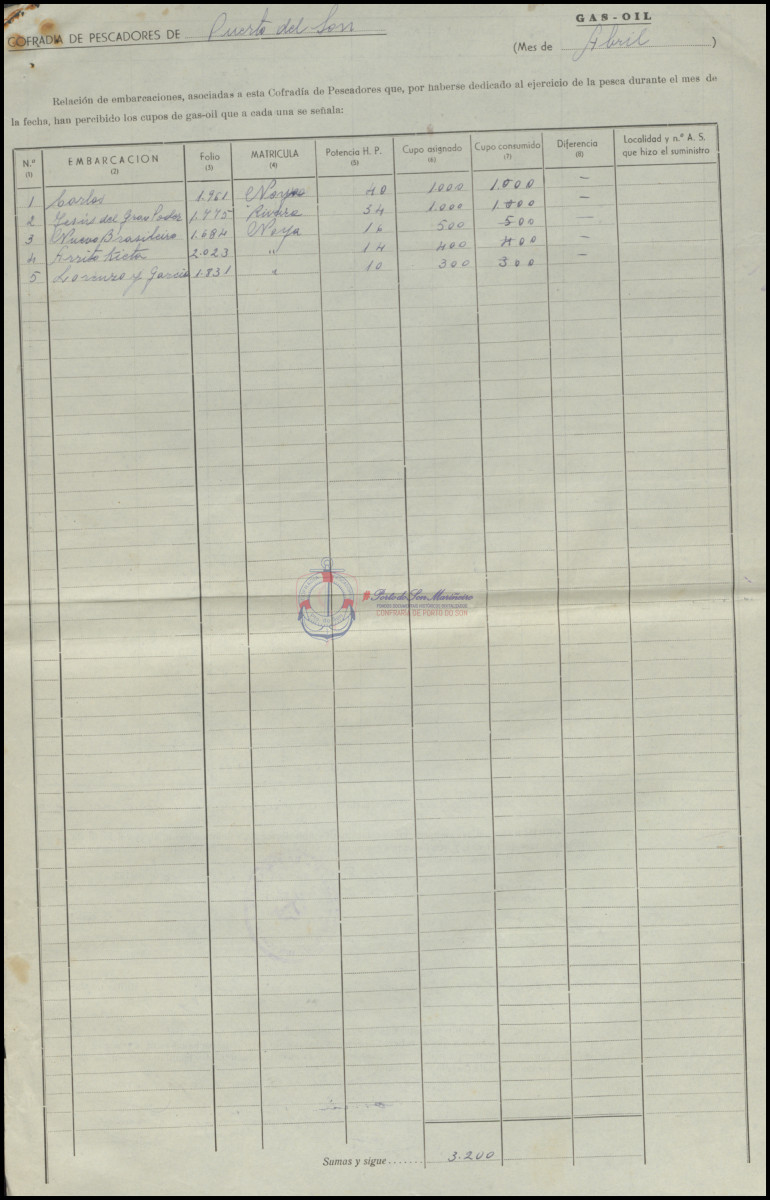 GAS-OIL
COFRADIA DE PESCADORES DE Puerto del Son
(Mes de Abril )
Relación de embarcaciones, asociadas a esta Cofradía de Pescadores que, por haberse dedicado al ejercicio de la pesca durante el mes de
la fecha, han percibido los cupos de gas-oil que a cada una se señala:
N.º (1) EMBARCACION (2) Folio (3) MATRICULA (4) Potencia H. P. (5) Cupo asignado (6) Cupo consumido (7) Diferencia (8) Localidad y n.º A. S. que hizo el suministro
1 Carlos 1.961 Noya 40 1000 1.000 —
2 Jesús del Gran Poder 1.775 Rivera 34 1.000 1.000 —
3 Nuevo Brasileiro 1.684 Noya 16 500 500 —
4 2.023 " 14 400 400 —
5 Lorenzo y Garcia 1.831 " 10 300 300 —
Porto do Son Mariñeiro
CONFRARÍA DE PORTO DO SON
Sumas y sigue....... 3.200